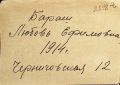 Бараш
Любовь Ефимовна
1914г.
Черниговская 12